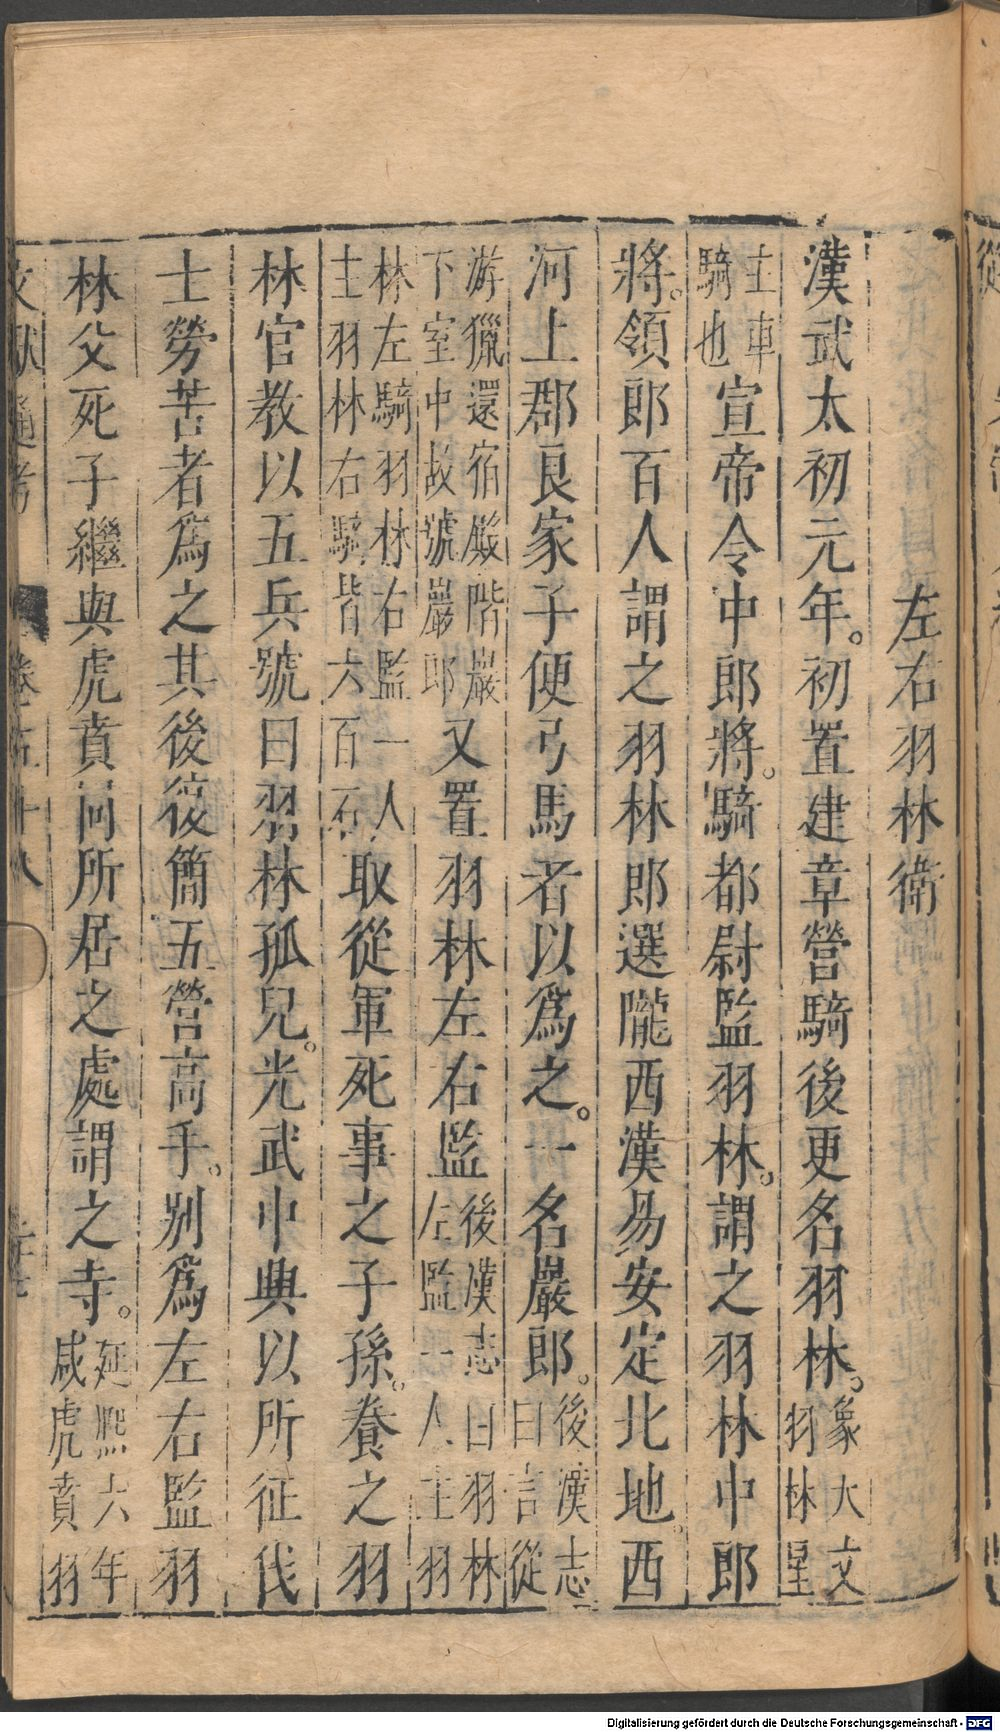 左右羽林衛
漢武太初元年。初置建章營騎後更名羽林。象大文羽林星
主車騎也宣帝令中郎將。騎都尉監羽林。謂之羽林中郎
將。領郎百人謂之羽林郎選隴西漢昜安定北地。西
河上郡良家子便弓馬者以爲之。一名巖郎。後漢志曰言從
游獵還宿殿階巖下室中故號巖郎又置羽林左右監後漢志曰羽林左監一人主羽
林左騎羽林右監一人主羽林右騎皆六百石取從軍死事之子孫。養之羽
林官教以五兵號曰羽林孤兒。光武中興以所征伐
士勞苦者爲之其後復簡五營高手。別爲左右監羽
林父死子繼與虎賁同所居之處謂之寺。延熙六年減虎賁羽
文獻通考
Digitalisierung gefördert durch die Deutsche Forschungsgemeinschaft - DFG